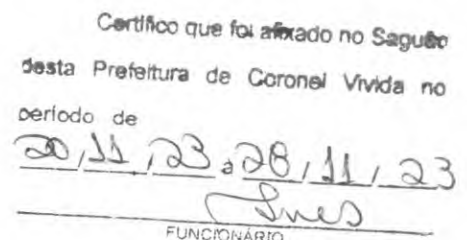 Certifico que foi afixado no Saguão
desta Prefeitura de Coronel Vivida no
período de
20, 11, 23 a 28, 11, 23
Ines
FUNCIONÁRIO